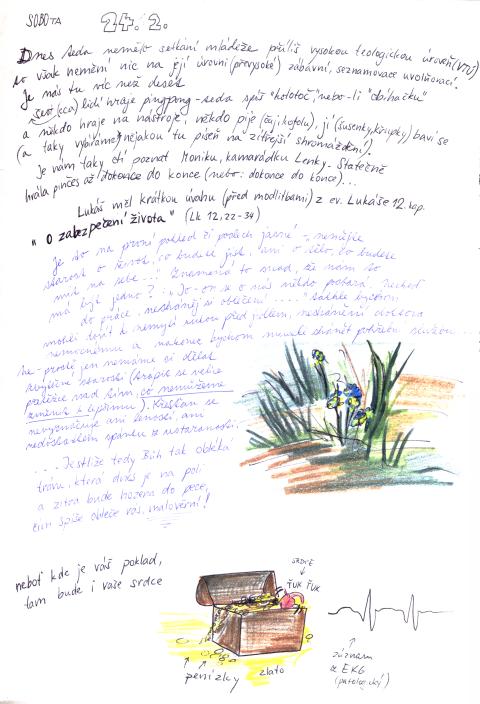 SOBOTA
24. 2.
Dnes teda nemělo setkání mládeže příliš vysokou teologickou úroveň (VTÚ)
to však nemění nic na její úrovni (převysoké) zábavní, seznamovací uvolňovací.
Je nás tu víc než deset
šest (cca) lidí hraje pingpong - teda spíš "kolotoč", nebo-li "obíhačku"
a někdo hraje na nástroje, někdo pije (čaj, kofolu), jí (sušenky, křupky) baví se
(a taky vybíráme nějakou tu píseň na zítřejší shromáždění).
Je nám taky ctí poznat Moniku, kamarádku Lenky - Statečně
hrála pinčes až dokonce do konce (nebo: dokonce do konce)...
Lukáš měl krátkou úvahu (před modlitbami) z ev. Lukáše 12. kap.
"O zabezpečení života" (Lk 12, 22-34)
Je to na první pohled či poslech jasné - nemějte
starost o život, co budete jíst, ani o tělo, co budete
mít na sebe..!" Znamená to snad, že nám to
má být jedno? "Jo - on se o nás někdo postará. Nechoď
do práce, nesháněj si oblečení....." takhle bychom
mohli dojít k nemytí rukou před jídlem, nesehnání doktora
nemocnému a nakonec bychom museli shánět pohřební službu...
Ne - prostě jen nemáme si dělat
zbytečné starosti (trápit se velice
přetěžce nad tím, co nemůžeme
změnit k lepšímu). Křesťan se
nevyznačuje ani leností, ani
nedostatkem spánku z ustaranosti.
.... Jestliže tedy Bůh tak obléká
trávu, která dnes je na poli
a zítra bude hozena do pece,
čím spíše obleče vás, malověrní!
neboť kde je váš poklad,
tam bude i vaše srdce
SRDCE
ŤUK ŤUK
penízky
zlato
záznam
z EKG
(patologický)